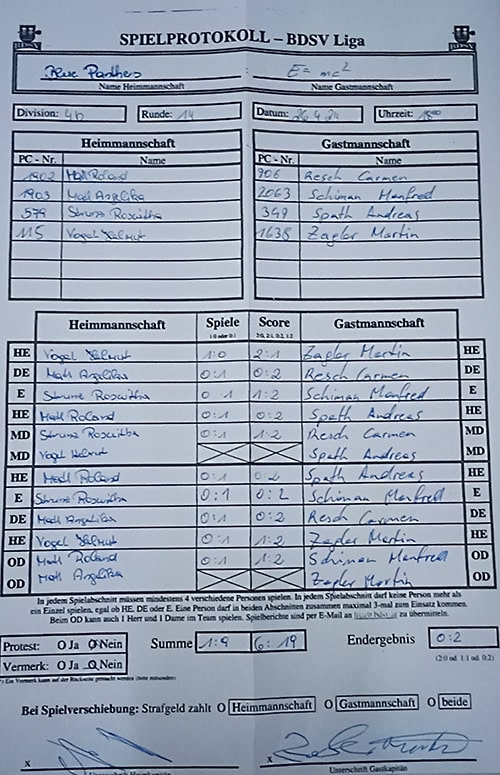 SPIELPROTOKOLL – BDSV Liga
Blue Panthers : E=mc²
Name Heimmannschaft Name Gastmannschaft
Division: 4b Runde: 14 Datum: 26.4.24 Uhrzeit: 18⁰⁰
Heimmannschaft Gastmannschaft
PC - Nr. Name PC - Nr. Name
1902 Matl Roland 906 Resch Carmen
1903 Matl Angelika 2063 Schiman Manfred
579 Strunz Roswitha 349 Spath Andreas
115 Vogel Helmut 1638 Zagler Martin
Heimmannschaft Spiele Score Gastmannschaft
1:0 oder 0:1 2:0, 2:1, 0:2, 1:2
HE Vogel Helmut 1:0 2:1 Zagler Martin HE
DE Matl Angelika 0:1 0:2 Resch Carmen DE
E Strunz Roswitha 0:1 1:2 Schiman Manfred E
HE Matl Roland 0:1 0:2 Spath Andreas HE
MD Strunz Roswitha 0:1 1:2 Resch Carmen MD
MD Vogel Helmut Spath Andreas MD
HE Matl Roland 0:1 0:2 Spath Andreas HE
E Strunz Roswitha 0:1 0:2 Schiman Manfred E
DE Matl Angelika 0:1 0:2 Resch Carmen DE
HE Vogel Helmut 0:1 1:2 Zagler Martin HE
OD Matl Roland 0:1 1:2 Schiman Manfred OD
OD Matl Angelika Zagler Martin OD
In jedem Spielabschnitt müssen mindestens 4 verschiedene Personen spielen. In jedem Spielabschnitt darf keine Person mehr als
ein Einzel spielen, egal ob HE, DE oder E. Eine Person darf in beiden Abschnitten zusammen maximal 3-mal zum Einsatz kommen.
Beim OD kann auch 1 Herr und 1 Dame im Team spielen. Spielberichte sind per E-Mail an zu übermitteln.
Protest: O Ja O Nein Summe 1:9 6:19 Endergebnis 0:2
Vermerk: O Ja O Nein (2:0 od. 1:1 od. 0:2)
*) Ein Vermerk kann auf der Rückseite gemacht werden (bitte mitsenden)
Bei Spielverschiebung: Strafgeld zahlt O Heimmannschaft O Gastmannschaft O beide
x x
Unterschrift Heimkapitän Unterschrift Gastkapitän